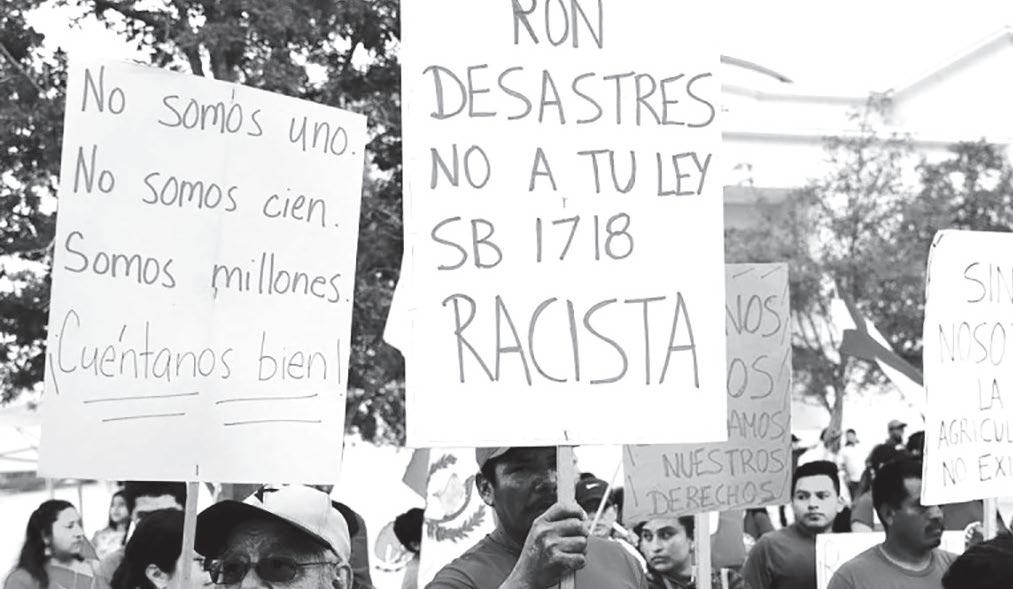 No somos uno.
No somos cien.
Somos millones.
¡Cuéntanos bien!
RON
DESASTRES
NO A TU LEY
SB 1718
RACISTA
NUESTROS
¡DERECHOS
SIN
LA
NO